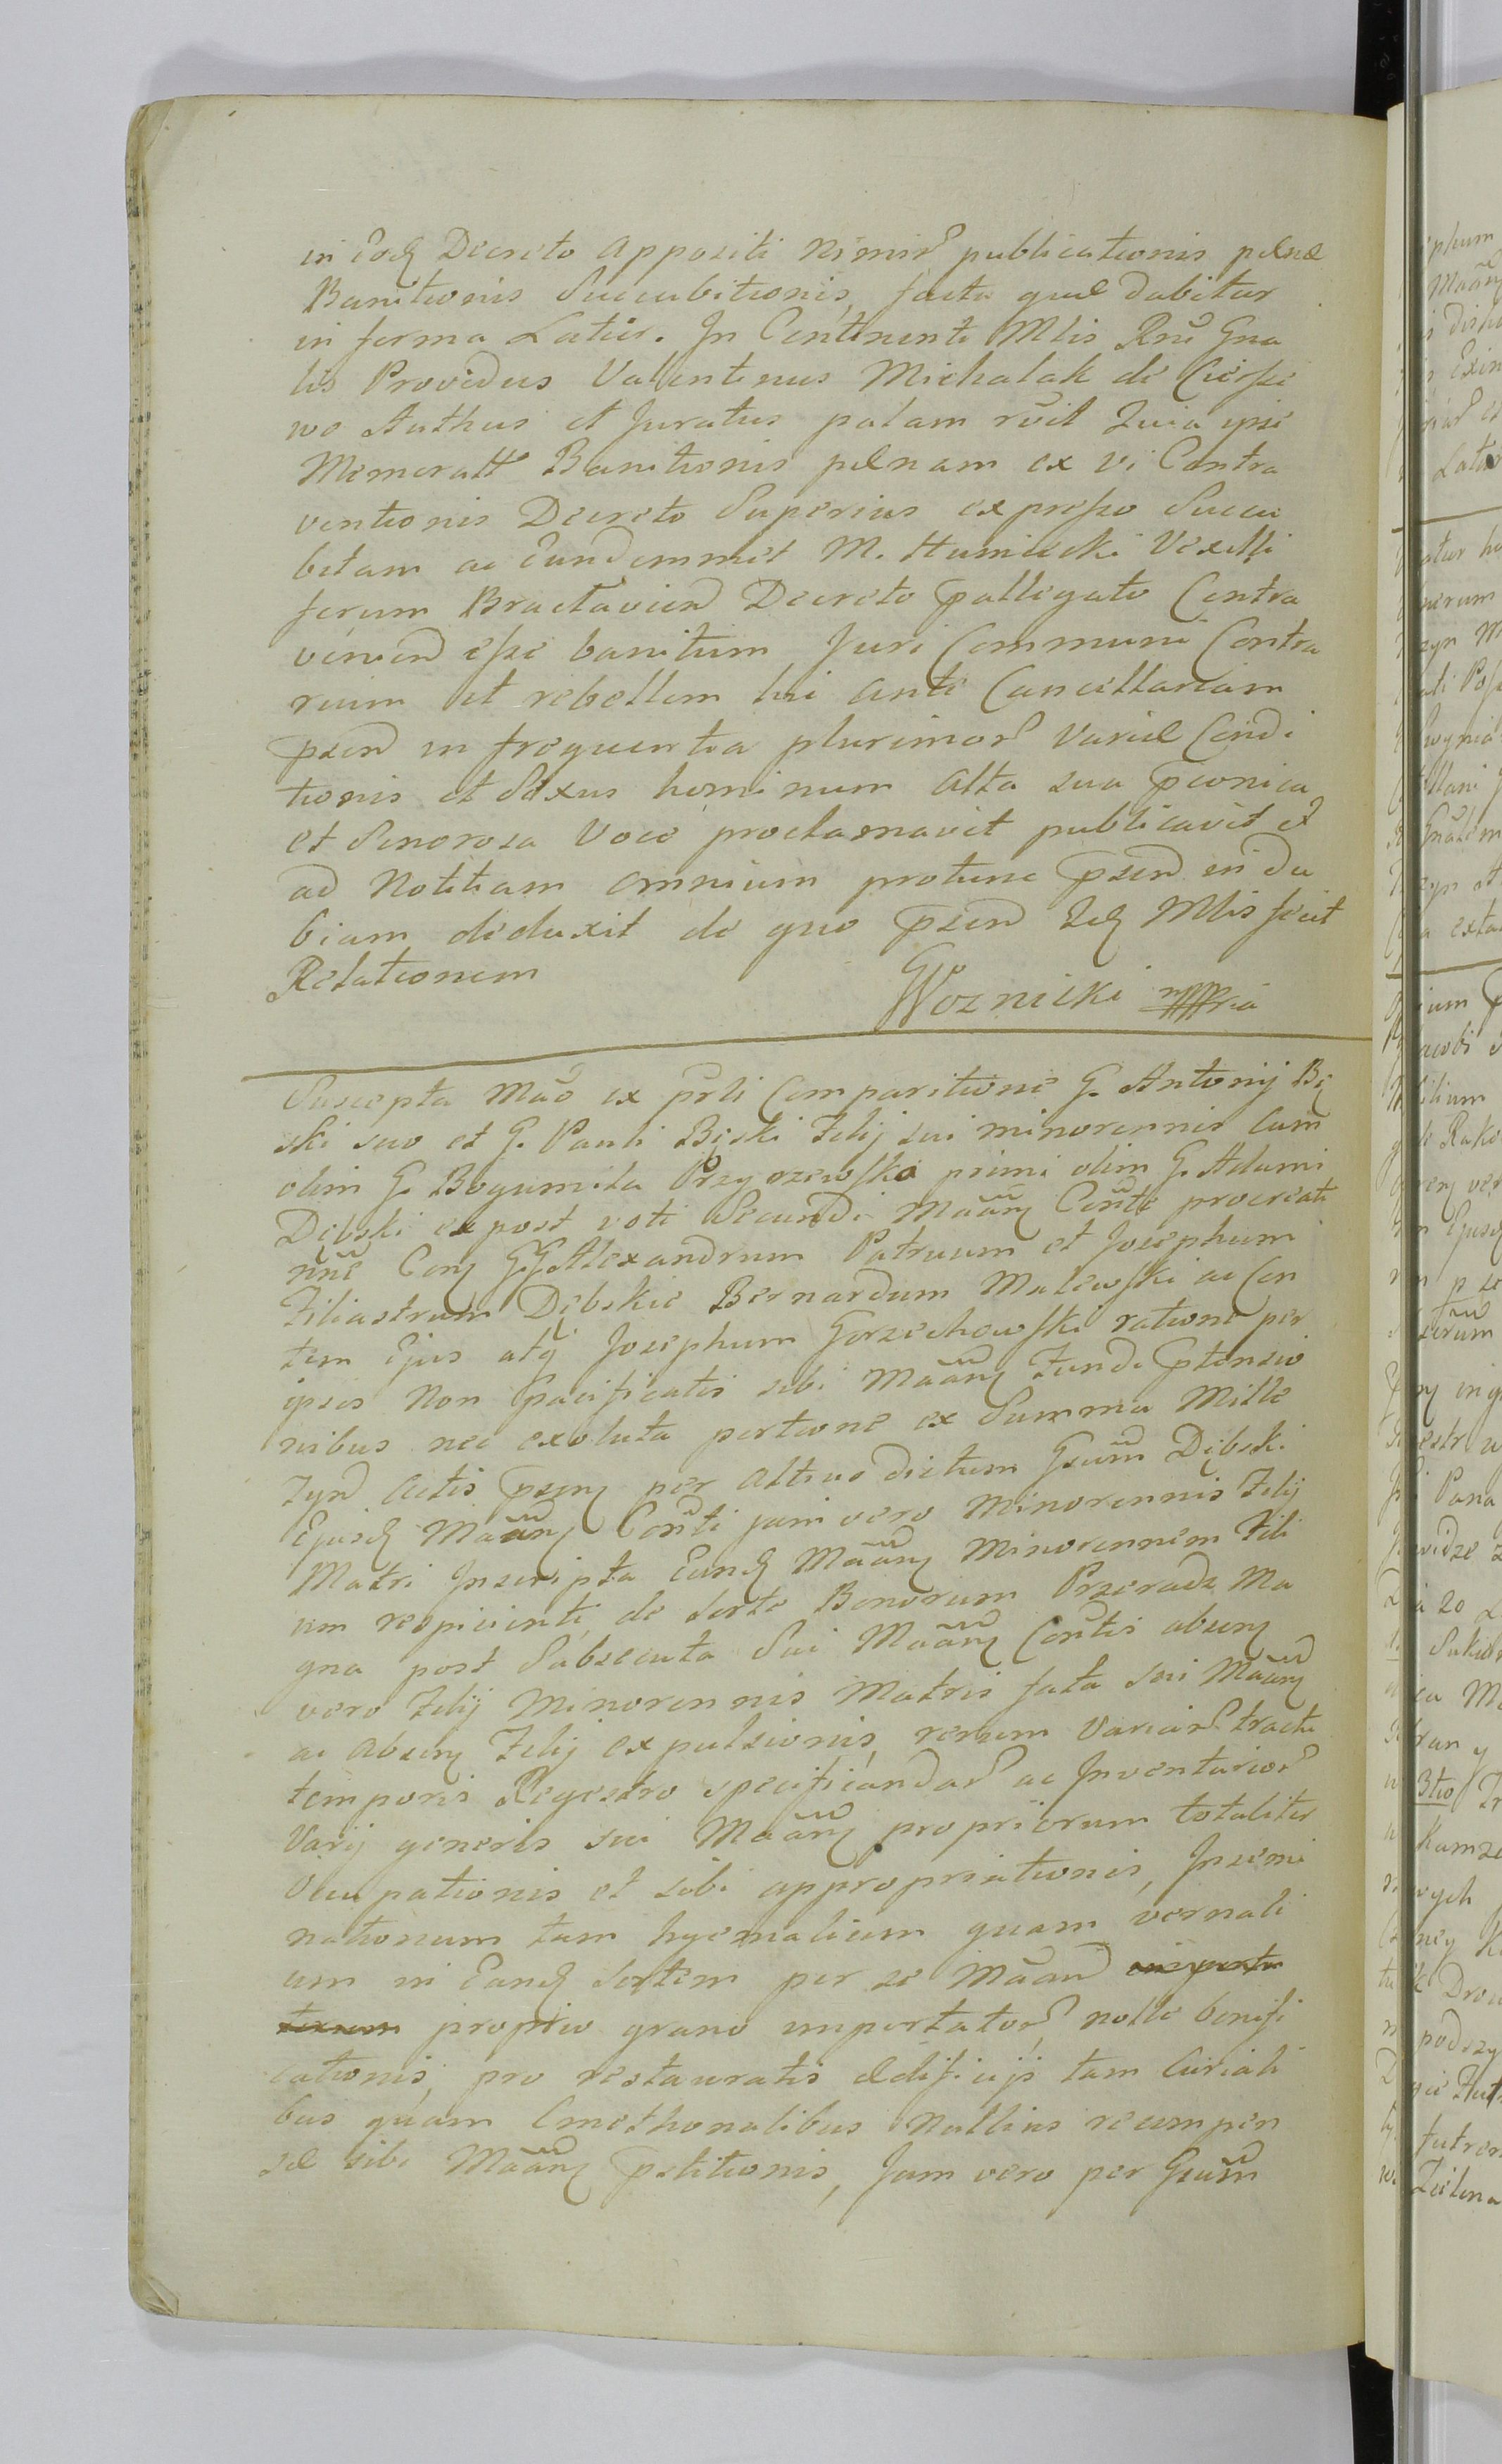 in Eodē Decreto appositi nimir̃ publicationis pænæ
Banitionis Succubitionis, facta quæ dabitur
in forma Latior. In Continenti Mlis Rn̄e Gna
lis Providus Valentinus Michalak de Cierpi
wo Authus et Juratus palam rūit Quia ipse
Memoratt Banitionis pænam ex vi Contra
ventionis Decreto Superius expresso Succu
bitam ac Eundemmet M. Humiecki Vexilli
ferum Bractavien Decreto pallegato Contra
venien esse banitum Juri Communi Contra
rium et rebellem hic ante Cancellariam
psen in frequentia plurimor̃ Variæ Condi
tionis et Sexus hominum alta sua pconica
et Sonorosa Voce proclamavit publicavit et
ad Notitiam omnium protunc psen indu
biam deduxit de quo psen Idē Mlis fecit
Relationem
Woznicki mppria
Suscepta Māo ex p̄rli Comparitione G. Antonij Bę
ski suo et G. Pauli Bęski Filij sui minorennis Cum
olim G. Bogumila Przyorzewska primi olim G. Adami
Dębski expost voti Secundi Māān Con̄te procreati
n̄n̄e Con G.G. Alexandrum Patruum et Josephum
Filiastrum Dębskie Bernardum Malewski ac Con
tem Ejus atq Josephum Gorzechowski ratione per
ipsos Non pacificatis sibi Māān Fundi ptensio
nibus nec exoluta portione ex Summa Mille
Tyn Actis psen per Altius dictum Gsum Dębski
Ejusd Māān Con̄ti jam vero Minorennis Filij
Matri Inscripta Eund Māān Minorennem Fili
um respicienti, de Sorte Bonorum Przeradz Ma
gna post Subsecuta Sui Māān Con̄tis absen
vero Filij Minorennis Matris fata Sui Māān
ac absen Filij expulsionis, rerum Variar̃ tractu
temporis Regestro specificandar̃ ac Inventarior̃
Varij generis sui Māān propriorum totaliter
Occupationis et sibi appropriationis, Insemi
nationum tam hyemalium quam vernali
um in Eand Sortem per se Māan
proprio grano importator̃, nolle bonifi
cationis, pro restauratis ædificijs tam Curiali
bus quam Cmethonalibus Nullius recumpen
sæ sibi Māān pstitionis, Jam vero per Gsum